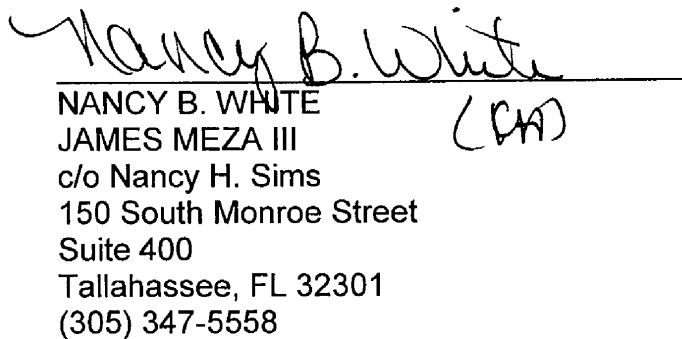 Nancy B. White
NANCY B. WHITE
JAMES MEZA III
c/o Nancy H. Sims
150 South Monroe Street
Suite 400
Tallahassee, FL 32301
(305) 347-5558